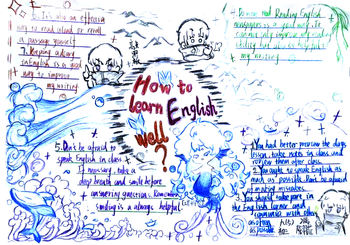 6. It's also an effective
way to read aloud or recall
a passage yourself
7. Keeping a diary
in English is a good
way to improve
my writing
Reading English
newspapers is a good way. It
can not only improve my reading
ability but also be helpful to
my writing
How to
learn English
well?
5. Don't be afraid to
speak English in class.
If necessary, take a
deep breath and smile before
answering questions. Remember
smiling is always helpful.
1. You had better preview the day's
lesson, take notes in class and
review them after class.
2. You ought to speak English as
much as possible. Don't be afraid
of making mistakes.
3. You should take part in
the English corner and
communicate with others
often
as possible